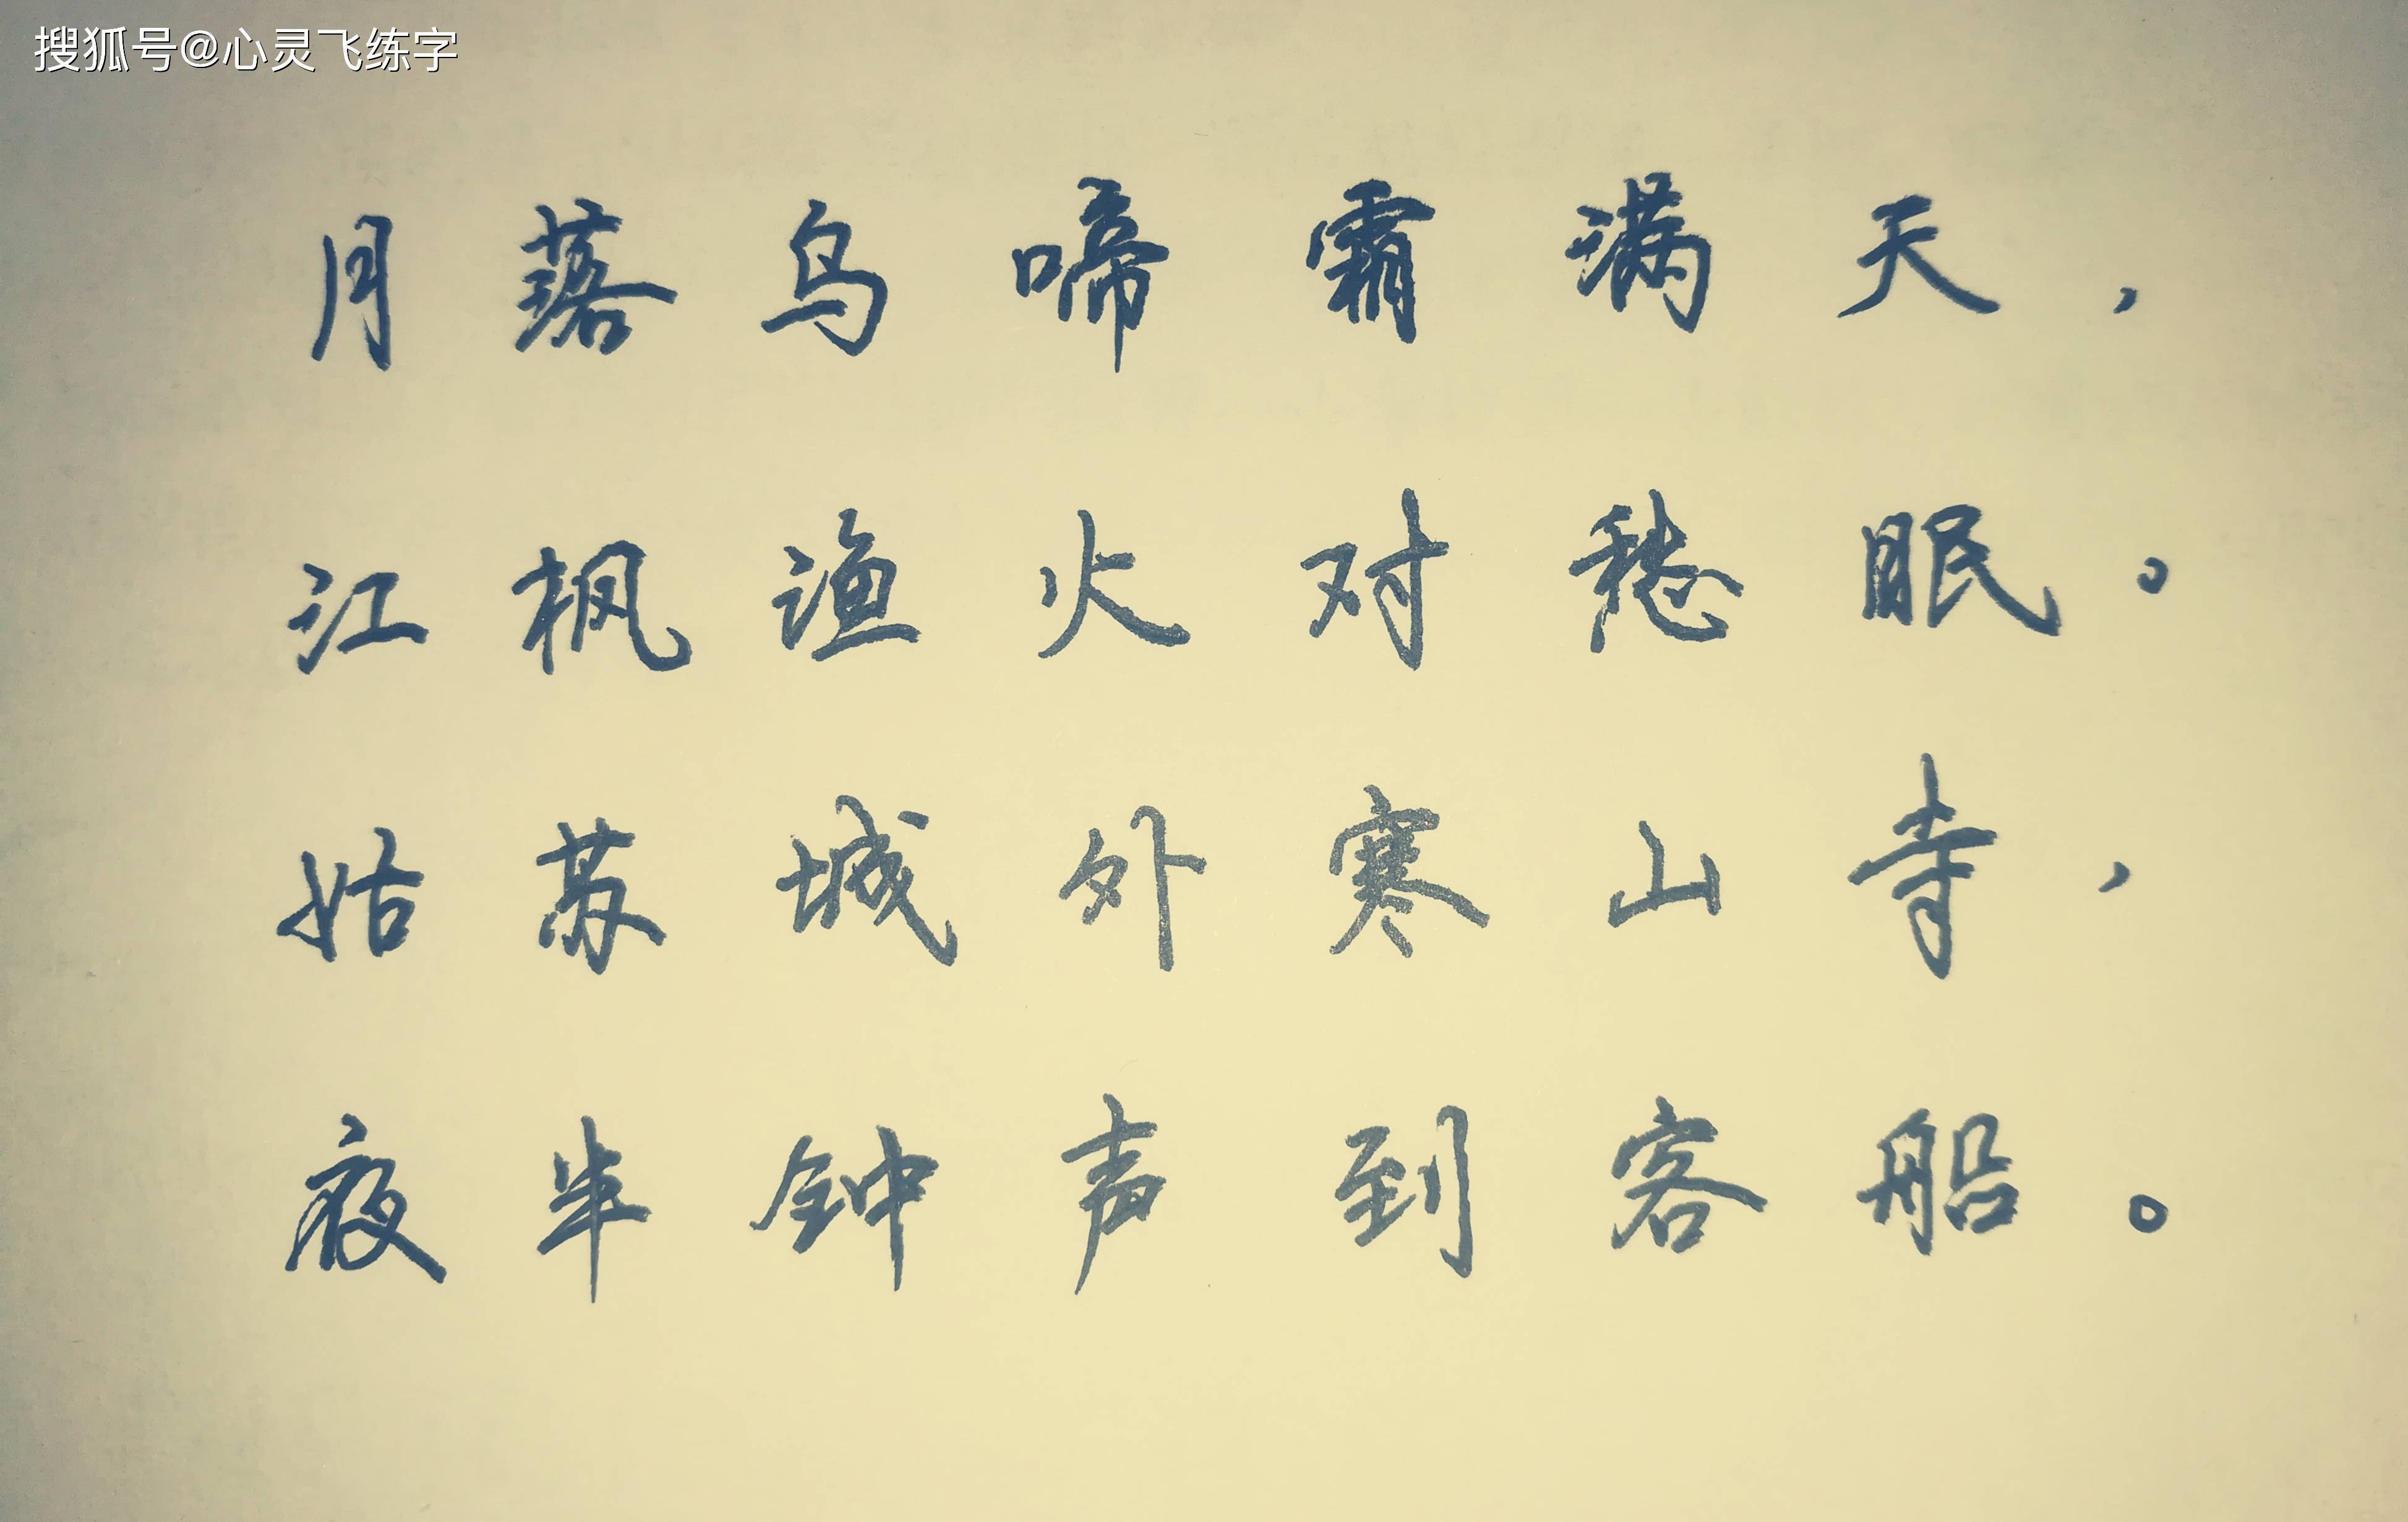 搜狐号@心灵飞练字
月落乌啼霜满天，
江枫渔火对愁眠。
姑苏城外寒山寺，
夜半钟声到客船。